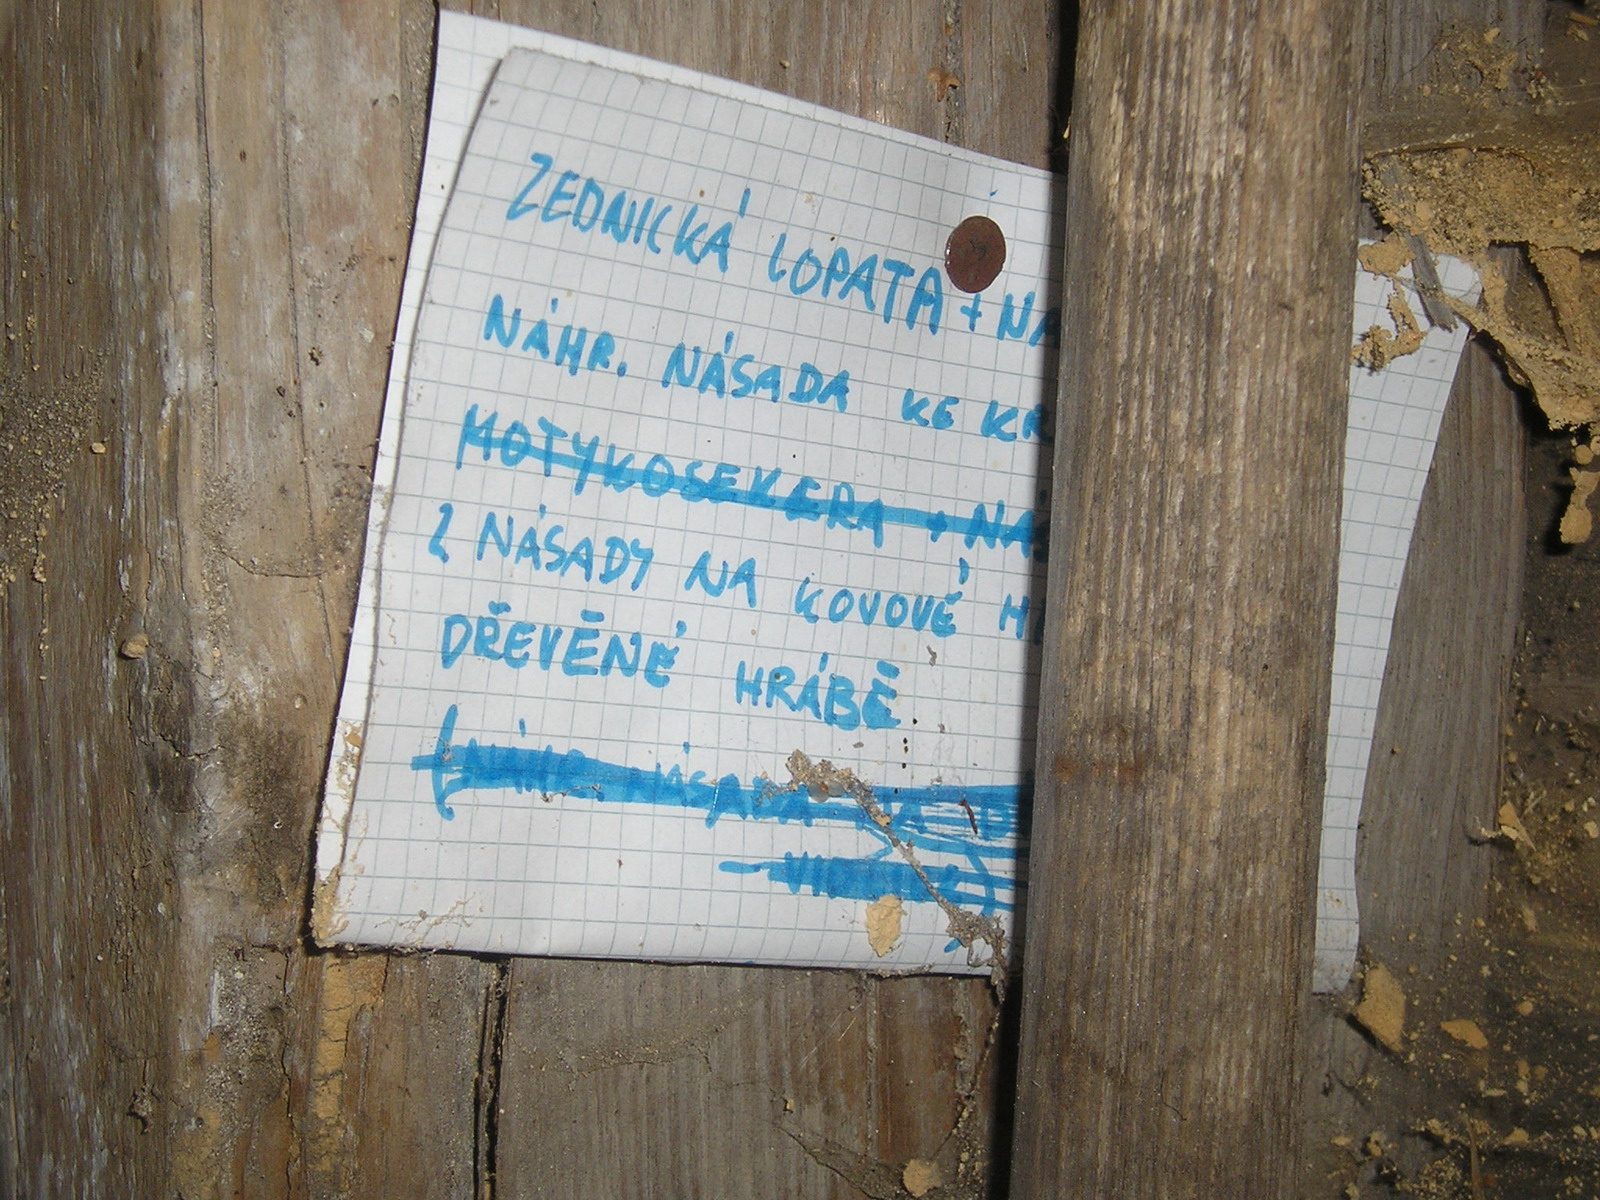 ZEDNICKÁ LOPATA + NÁ
NÁHR. NÁSADA KE KR
MOTYKOSEKERA + NÁS
2 NÁSADY NA KOVOVÉ H
DŘEVĚNÉ HRÁBĚ
(NÁHR. NÁSADA NA